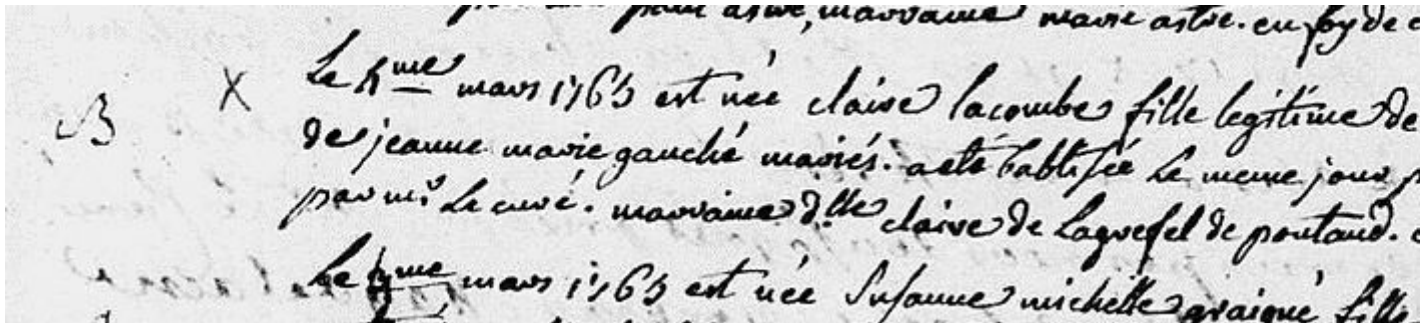 marraine marie astre. en foy de
B X Le 4me mars 1763 est née claire lacombe fille legitime de
de jeanne marie gauché mariés. a eté babtisée Le meme jour
par mr Le curé. marraine dlle claire de Lagrefel de pontaud.
Le me mars 1763 est née Susanne michelle graigné fille